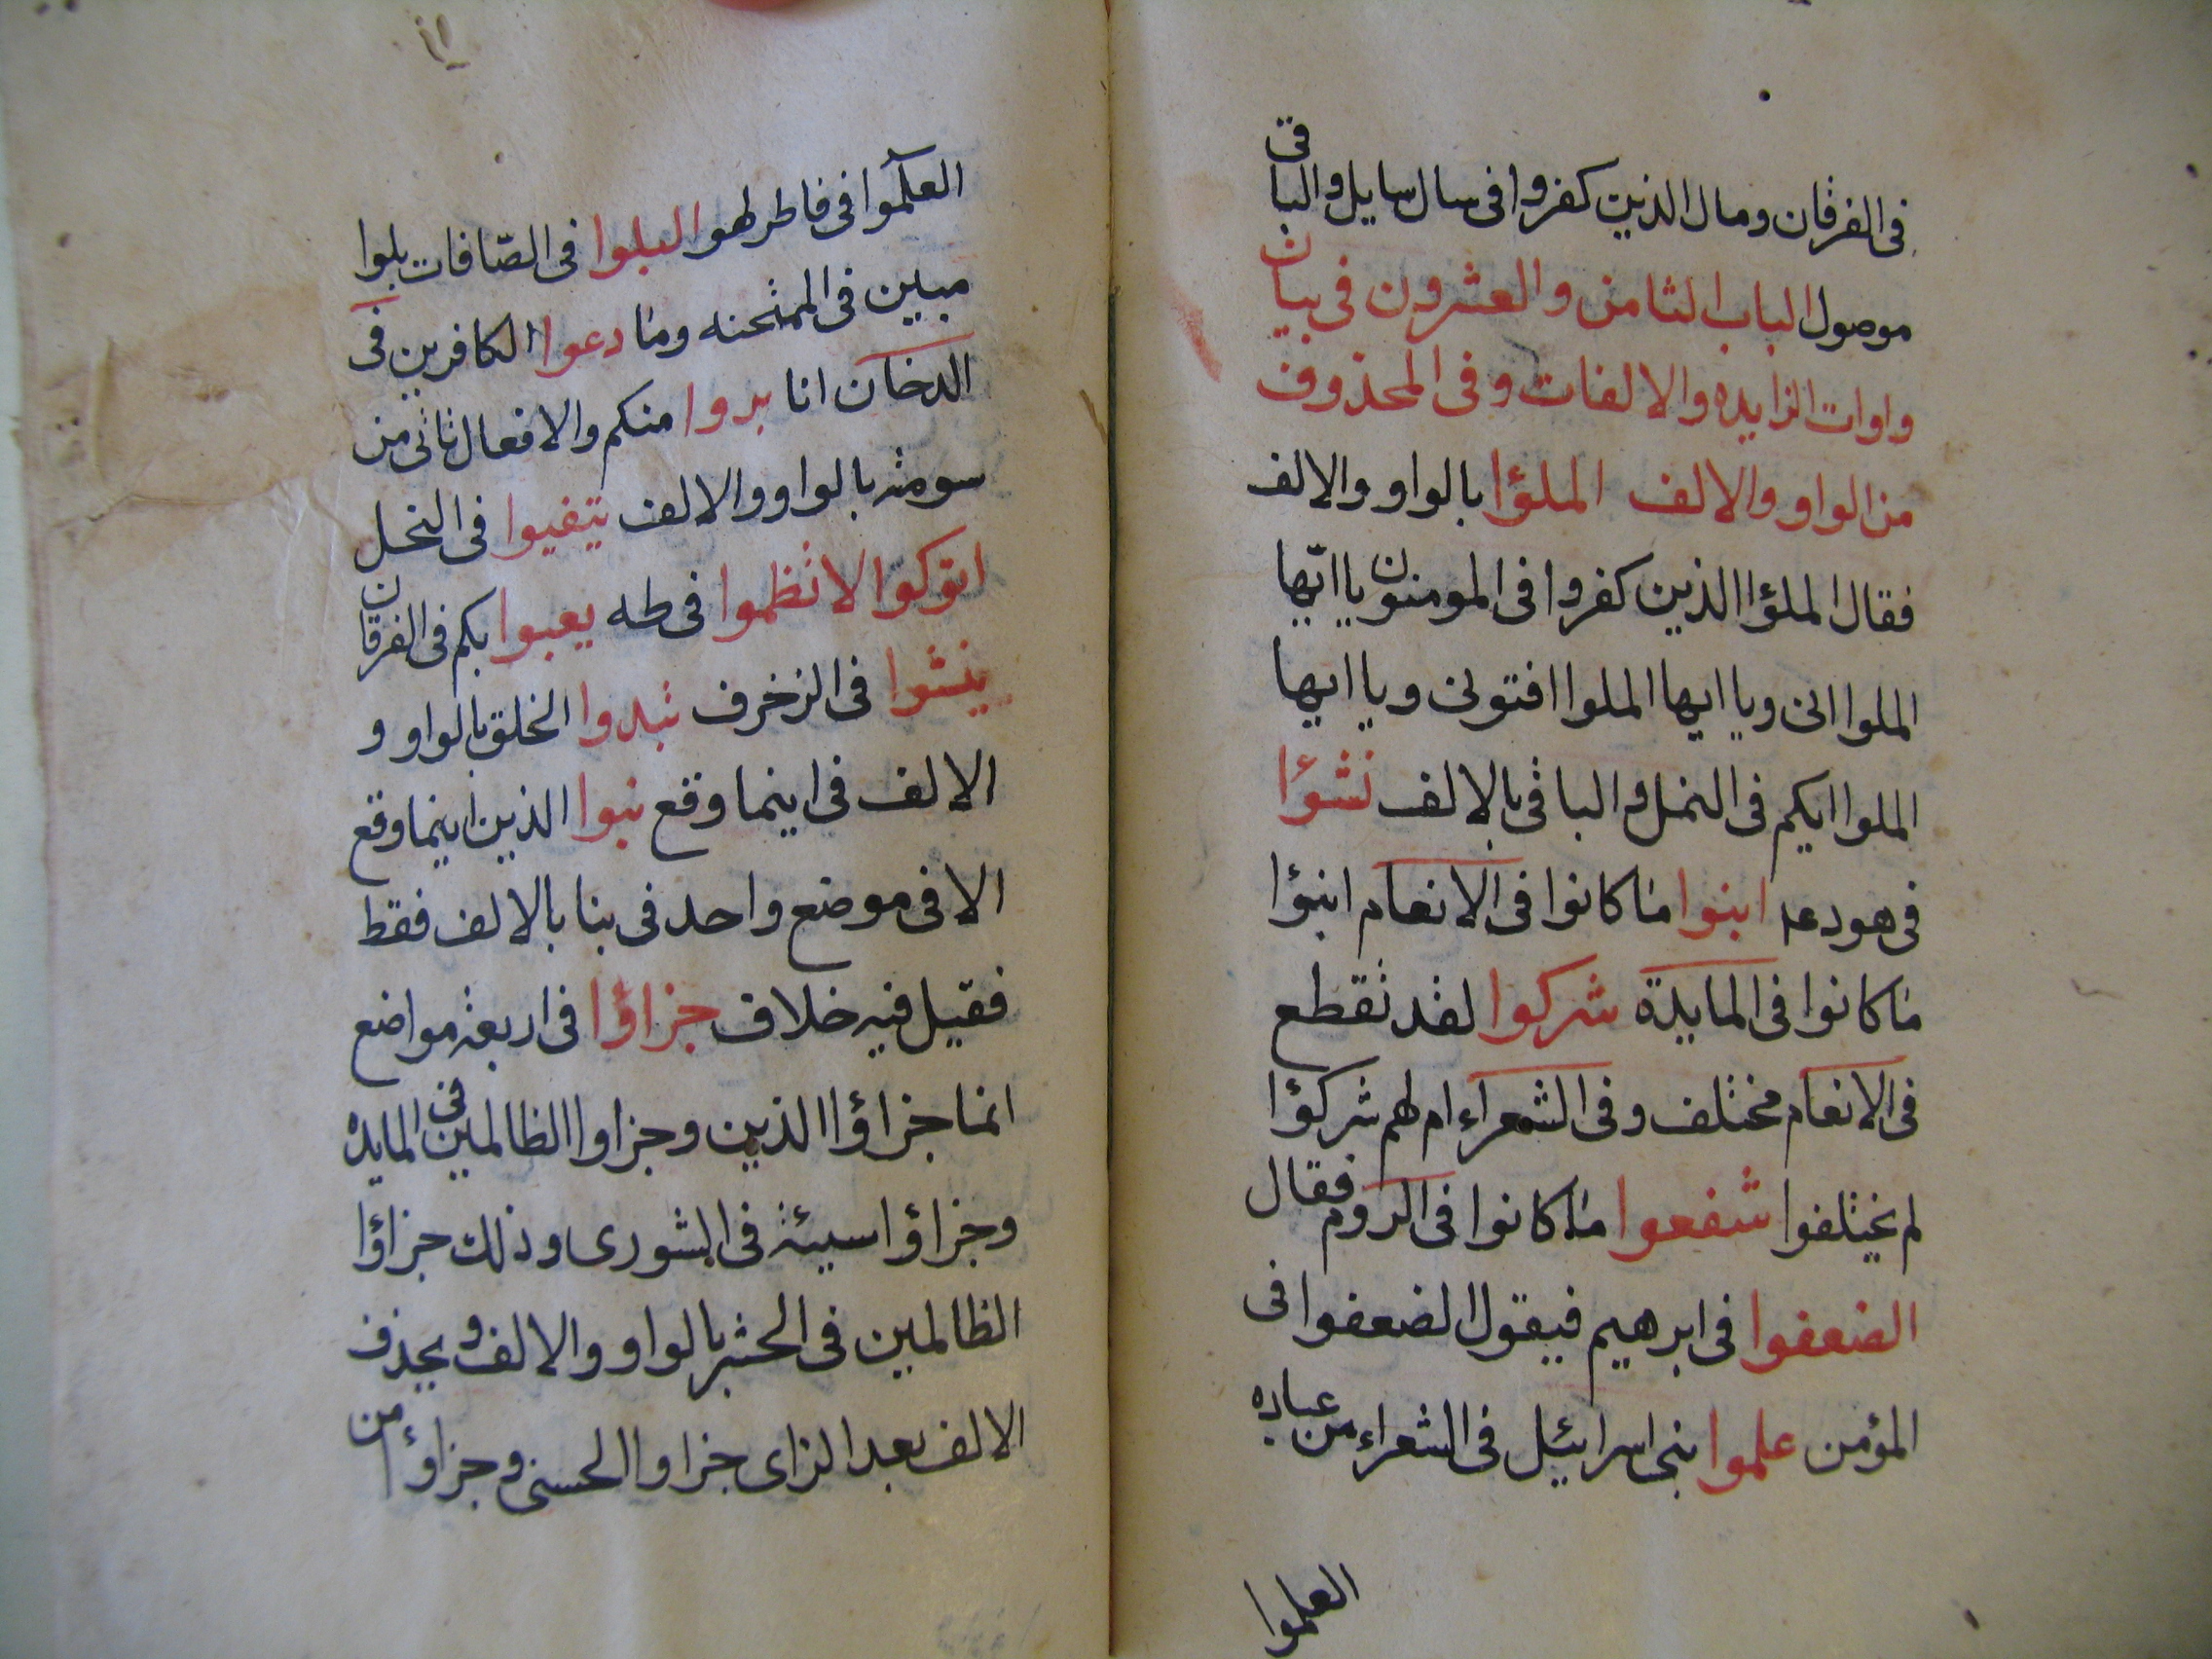 فى الفرقان ومال الذين كفروا فى سال سايل والباقى
موصول الباب الثامن والعشرون فى بيان
واوات الزايده والالفات وفى المحذوف
من الواو والالف الملؤا بالواو والالف
فقال الملؤا الذين كفروا فى المومنون يا ايّها
الملوا انى ويا ايها الملوا افتونى ويا ايها
الملوا ايكم فى النمل والباقى بالالف نشؤا
فى هود عد ابنوا ما كانوا فى الانعام انبؤا
ما كانوا فى المايدة شركوا لقد تقطع
فى الانعام مختلف وفى الشعراء ام لهم شركؤا
لم يختلفوا شفعوا ما كانوا فى الروم فقال
الضعفوا فى ابرهيم فيقول الضعفوا فى
المؤمن علموا بنى اسرايئل فى الشعراء من عباده
العلموا
١١
العلموا فى فاطر لهو البلوا فى الصّافات بلوا
مبين فى الممتحنه وما دعوا الكافرين فى
الدخان انا بروا منكم والافعال ثانى من
سومثه بالواو والالف يتفيوا فى النحل
اتوكوا لا تظموا فى طه يعبوا بكم فى الفرقان
ينشوا فى الزخرف تبدوا الخلق بالواو و
الالف فى اينما وقع نبوا الذين اينما وقع
الا فى موضع واحد فى بنا بالالف فقط
فقيل فيه خلاف جزاؤا فى اربعة مواضع
انما جزاؤا الذين وجزاوا الظالمين فى المايده
وجزاؤا سيئة فى الشورى وذلك جزاؤا
الظالمين فى الحشر بالواو والالف ويحذف
الالف بعد الزاى جزاوا الحسنى وجزاؤ من